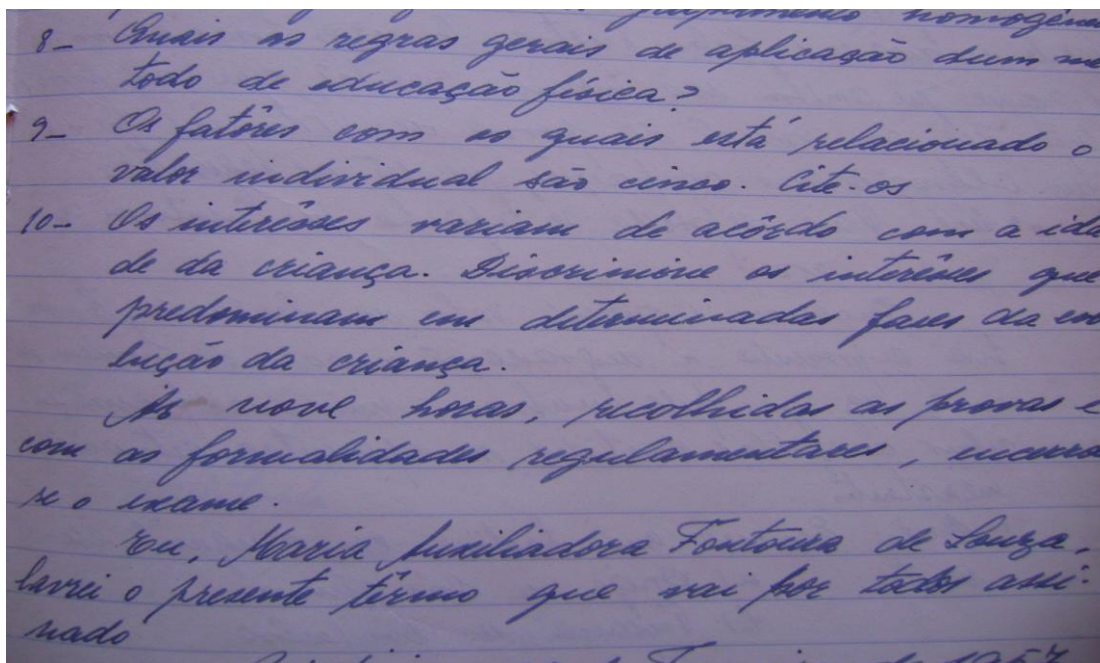 agrupamento homogêne
8- Quais as regras gerais de aplicação dum mé
todo de educação física?
9- Os fatôres com os quais está relacionado o
valor individual são cinco. Cite-os
10- Os interêsses variam de acôrdo com a ida
de da criança. Discrimine os interêsses que
predominam em determinadas fases da evo
lução da criança.
Às nove horas, recolhidas as provas e
com as formalidades regulamentares, encerro
se o exame.
Eu, Maria Auxiliadora Fontoura de Souza,
lavrei o presente têrmo que vai por todos assi-
nado
de 1957